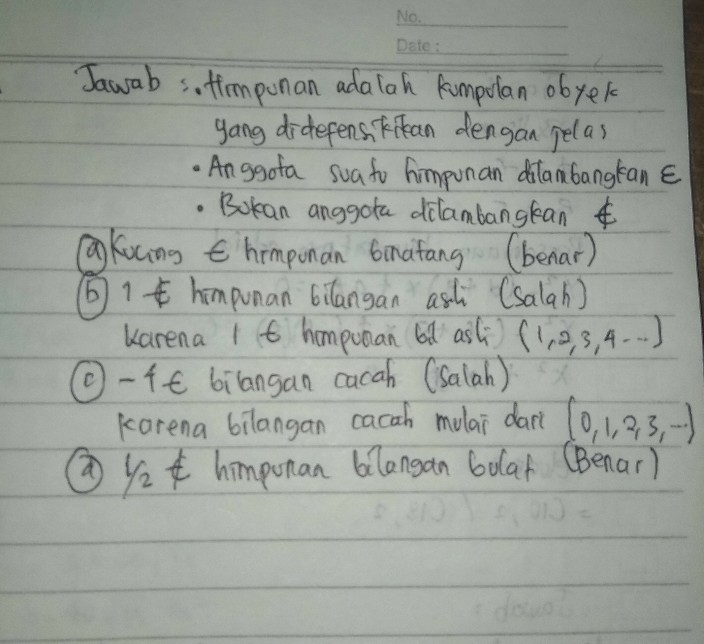 No.
Date:
Jawab : • Himpunan adalah kumpulan obyek
yang didefensikikan dengan jelas
• Anggota suatu himpunan dilambangkan ∈
• Bukan anggota dilambangkan ∉
(a) Kucing ∈ himpunan binatang (benar)
(b) 1 ∉ himpunan bilangan asli (Salah)
karena 1 ∈ himpunan bil asli {1,2,3,4...}
(c) -4 ∈ bilangan cacah (Salah)
karena bilangan cacah mulai dari {0,1,2,3,...}
(d) 1/2 ∉ himpunan bilangan bulat (Benar)